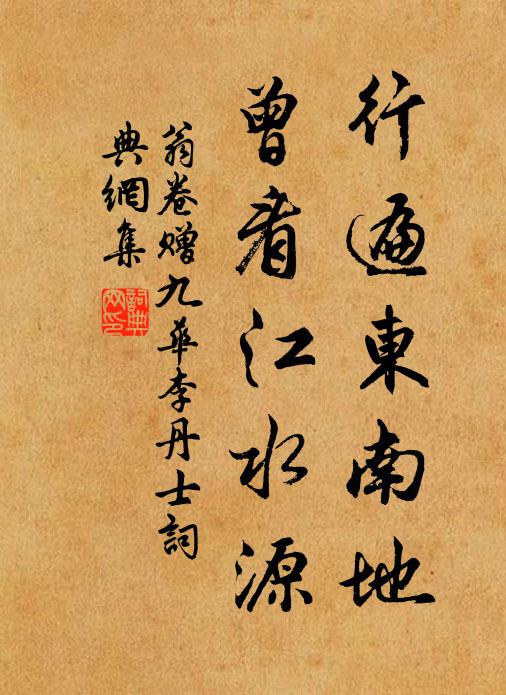 行遍東南地
曾看江水源
翁卷贈九華李丹士詞
典網集
詞典網印